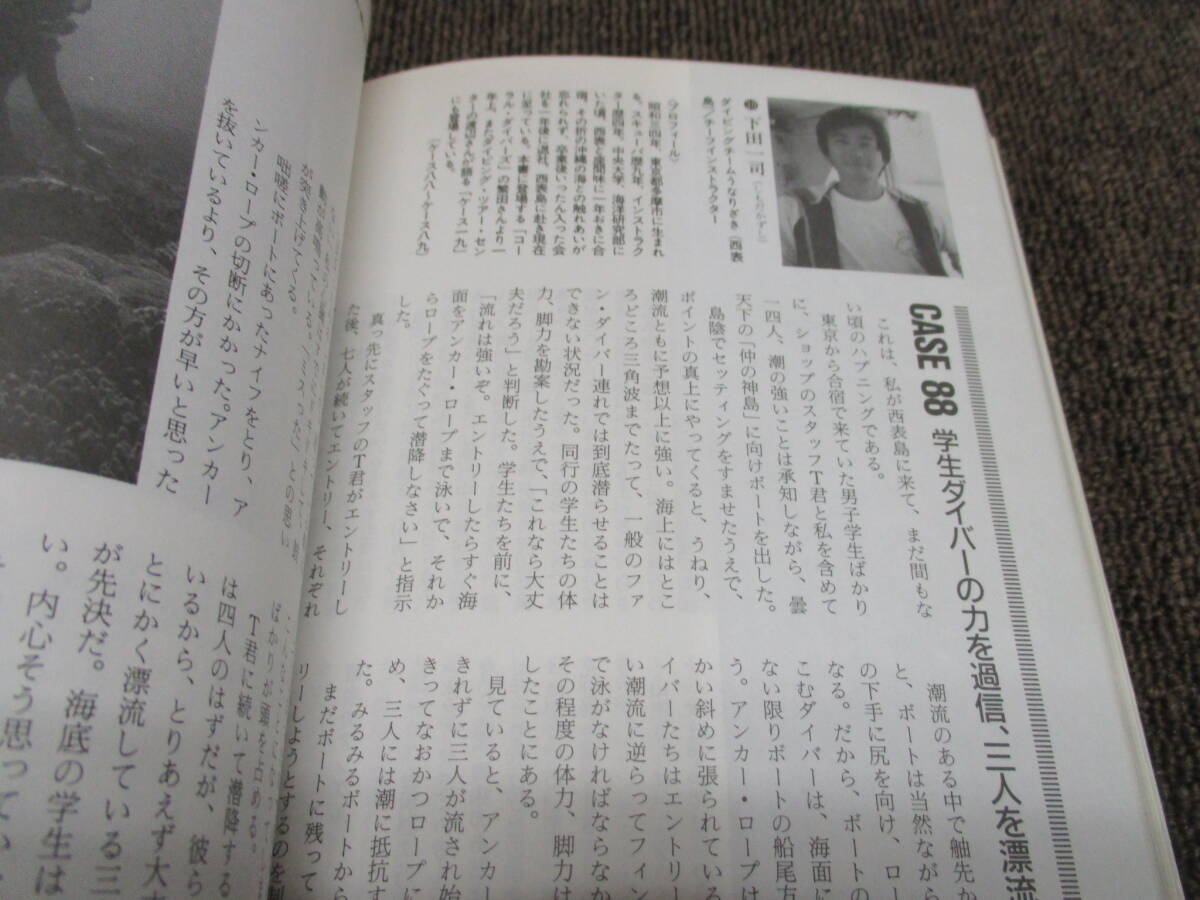 CASE 88 学生ダイバーの力を過信、三人を漂流
下田一司
ダイビングチームうなりざき〔西表
島〕チーフインストラクター
〈プロフィール〉
昭和三四年、東京都多摩市に生まれ
る。スキューバ歴九年、インストラク
ター歴四年。中央大学、海洋研究部に
いた頃、西表と座間味に一年おきに合
宿、その折の沖縄の海との触れあいが
忘れられず、卒業後いったん入った会
社を一年後に退社、西表島に赴き現在
に至っている。本書に登場する「コー
ラル・ダイバーズ」の繁田さんより一
年上。またダイビング・ツアー・セン
ターの渡辺さんが語る「ケース一九」
にも登場している。
〔ケース八八〜ケース八九〕
これは、私が西表島に来て、まだ間もな
い頃のハプニングである。
東京から合宿で来ていた男子学生ばかり
に、ショップのスタッフT君と私を含めて
一四人、潮の強いことは承知しながら、曇
天下の「仲の神島」に向けボートを出した。
島陰でセッティングをすませたうえで、
ポイントの真上にやってくると、うねり、
潮流ともに予想以上に強い。海上にはとこ
ろどころ三角波までたって、一般のファ
ン・ダイバー連れでは到底潜らせることは
できない状況だった。同行の学生たちの体
力、脚力を勘案したうえで、「これなら大丈
夫だろう」と判断した。学生たちを前に、
「流れは強いぞ。エントリーしたらすぐ海
面をアンカー・ロープまで泳いで、それか
らロープをたぐって潜降しなさい」と指示
した。
真っ先にスタッフのT君がエントリーし
た後、七人が続いてエントリー、それぞれ
潮流のある中で舳先か
と、ボートは当然ながら
の下手に尻を向け、ロー
なる。だから、ボートの
こむダイバーは、海面に
ない限りボートの船尾方
う。アンカー・ロープは
かい斜めに張られている
イバーたちはエントリー
い潮流に逆らってフィン
で泳がなければならなか
その程度の体力、脚力は
したことにある。
見ていると、アンカー
きれずに三人が流され始
きってなおかつロープに
め、三人には潮に抵抗す
た。みるみるボートから
まだボートに残って
リーしようとするのを制
が突き上げてくる。
咄嗟にボートにあったナイフをとり、ア
ンカー・ロープの切断にかかった。アンカー
を抜いているより、その方が早いと思った
ばかりが頭を占める。
T君に続いて潜降する
は四人のはずだが、彼ら
いるから、とりあえず大
とにかく漂流している三
が先決だ。海底の学生は
い。内心そう思ってい